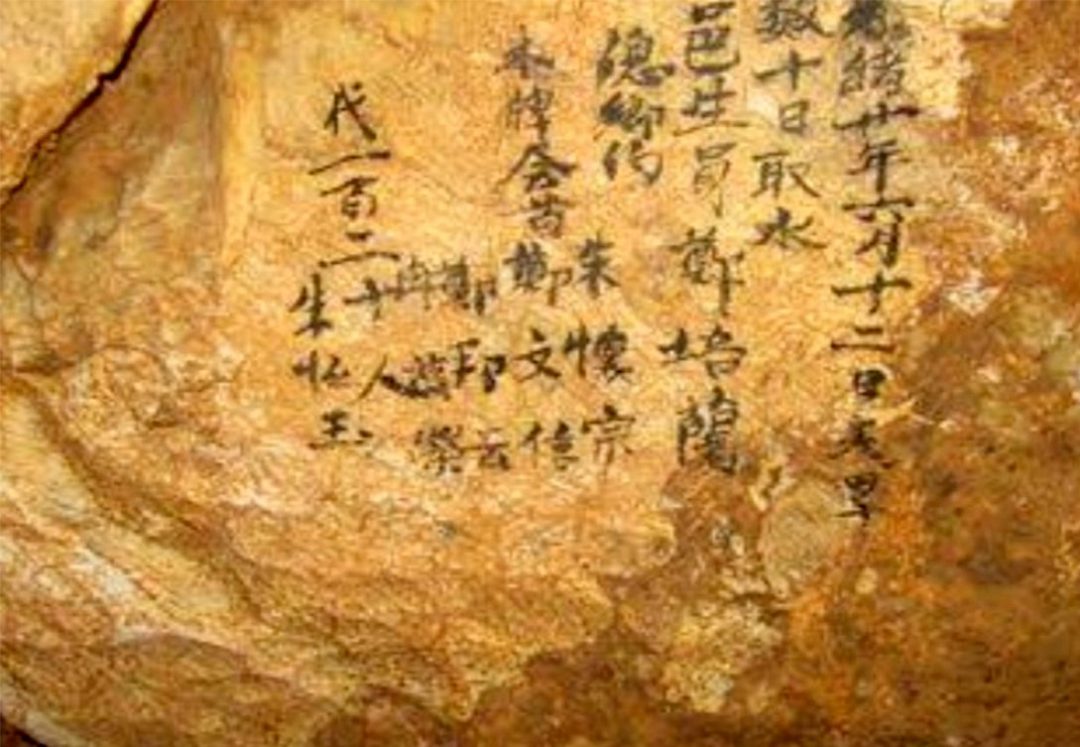 光緒廿年六月十二日天旱
數十日取水
邑生員鄭培蘭
總鄉約 朱懷宗
水牌会首鄭文
鄭印云
冉榮
代一百二十人
朱忆玉